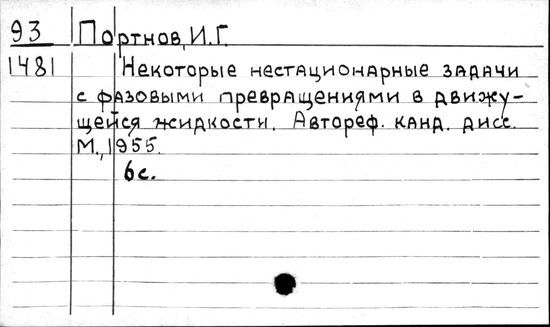 93 Портнов, И.Г.
1481 Некоторые нестационарные задачи
с фазовыми превращениями в движу-
щейся жидкости. Автореф. канд. дисс.
М., 1955.
6с.